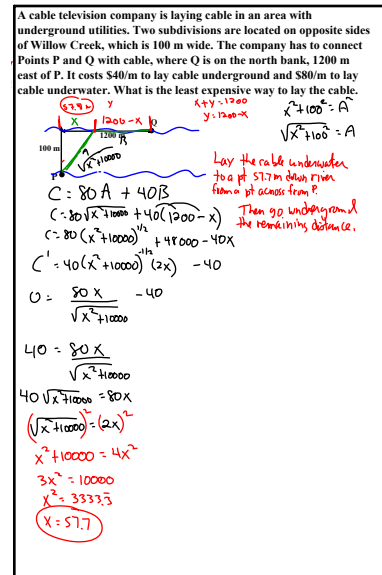 A cable television company is laying cable in an area with
underground utilities. Two subdivisions are located on opposite sides
of Willow Creek, which is 100 m wide. The company has to connect
Points P and Q with cable, where Q is on the north bank, 1200 m
east of P. It costs $40/m to lay cable underground and $80/m to lay
cable underwater. What is the least expensive way to lay the cable.
57.7 m
y
x+y=1200
y=1200-x
x²+100²=A²
√x²+100²=A
x
1200-x
Q
1200 m
B
100 m
A
√x²+10000
P
Lay the cable underwater
to a pt 57.7m down river
from a pt across from P.
Then go underground
the remaining distance.
C = 80A + 40B
C = 80√x²+10000 + 40(1200-x)
C = 80(x²+10000)^1/2 + 48000 - 40x
C' = 40(x²+10000)^-1/2 (2x) - 40
0 = 80x / √x²+10000 - 40
40 = 80x / √x²+10000
40√x²+10000 = 80x
(√x²+10000)² = (2x)²
x²+10000 = 4x²
3x² = 10000
x² = 3333.3
x = 57.7